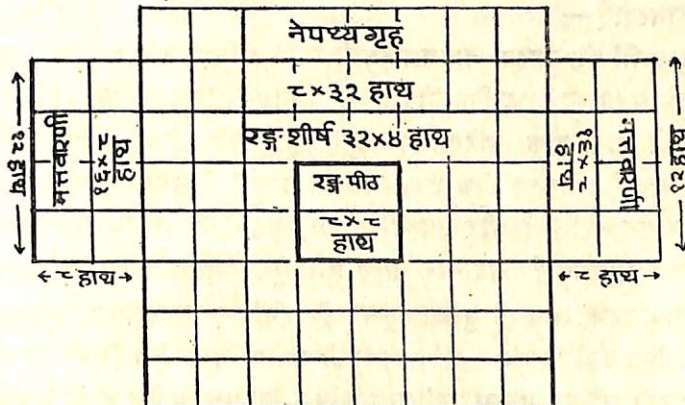 नेपथ्य गृह
८×३२ हाथ
रङ्ग शीर्ष ३२×४ हाथ
रङ्ग-पीठ
८×८
हाथ
१२ हाथ
मत्तवरणी
१६×८
हाथ
८ हाथ
१६×८
हाथ
मत्तवरणी
१२ हाथ
८ हाथ